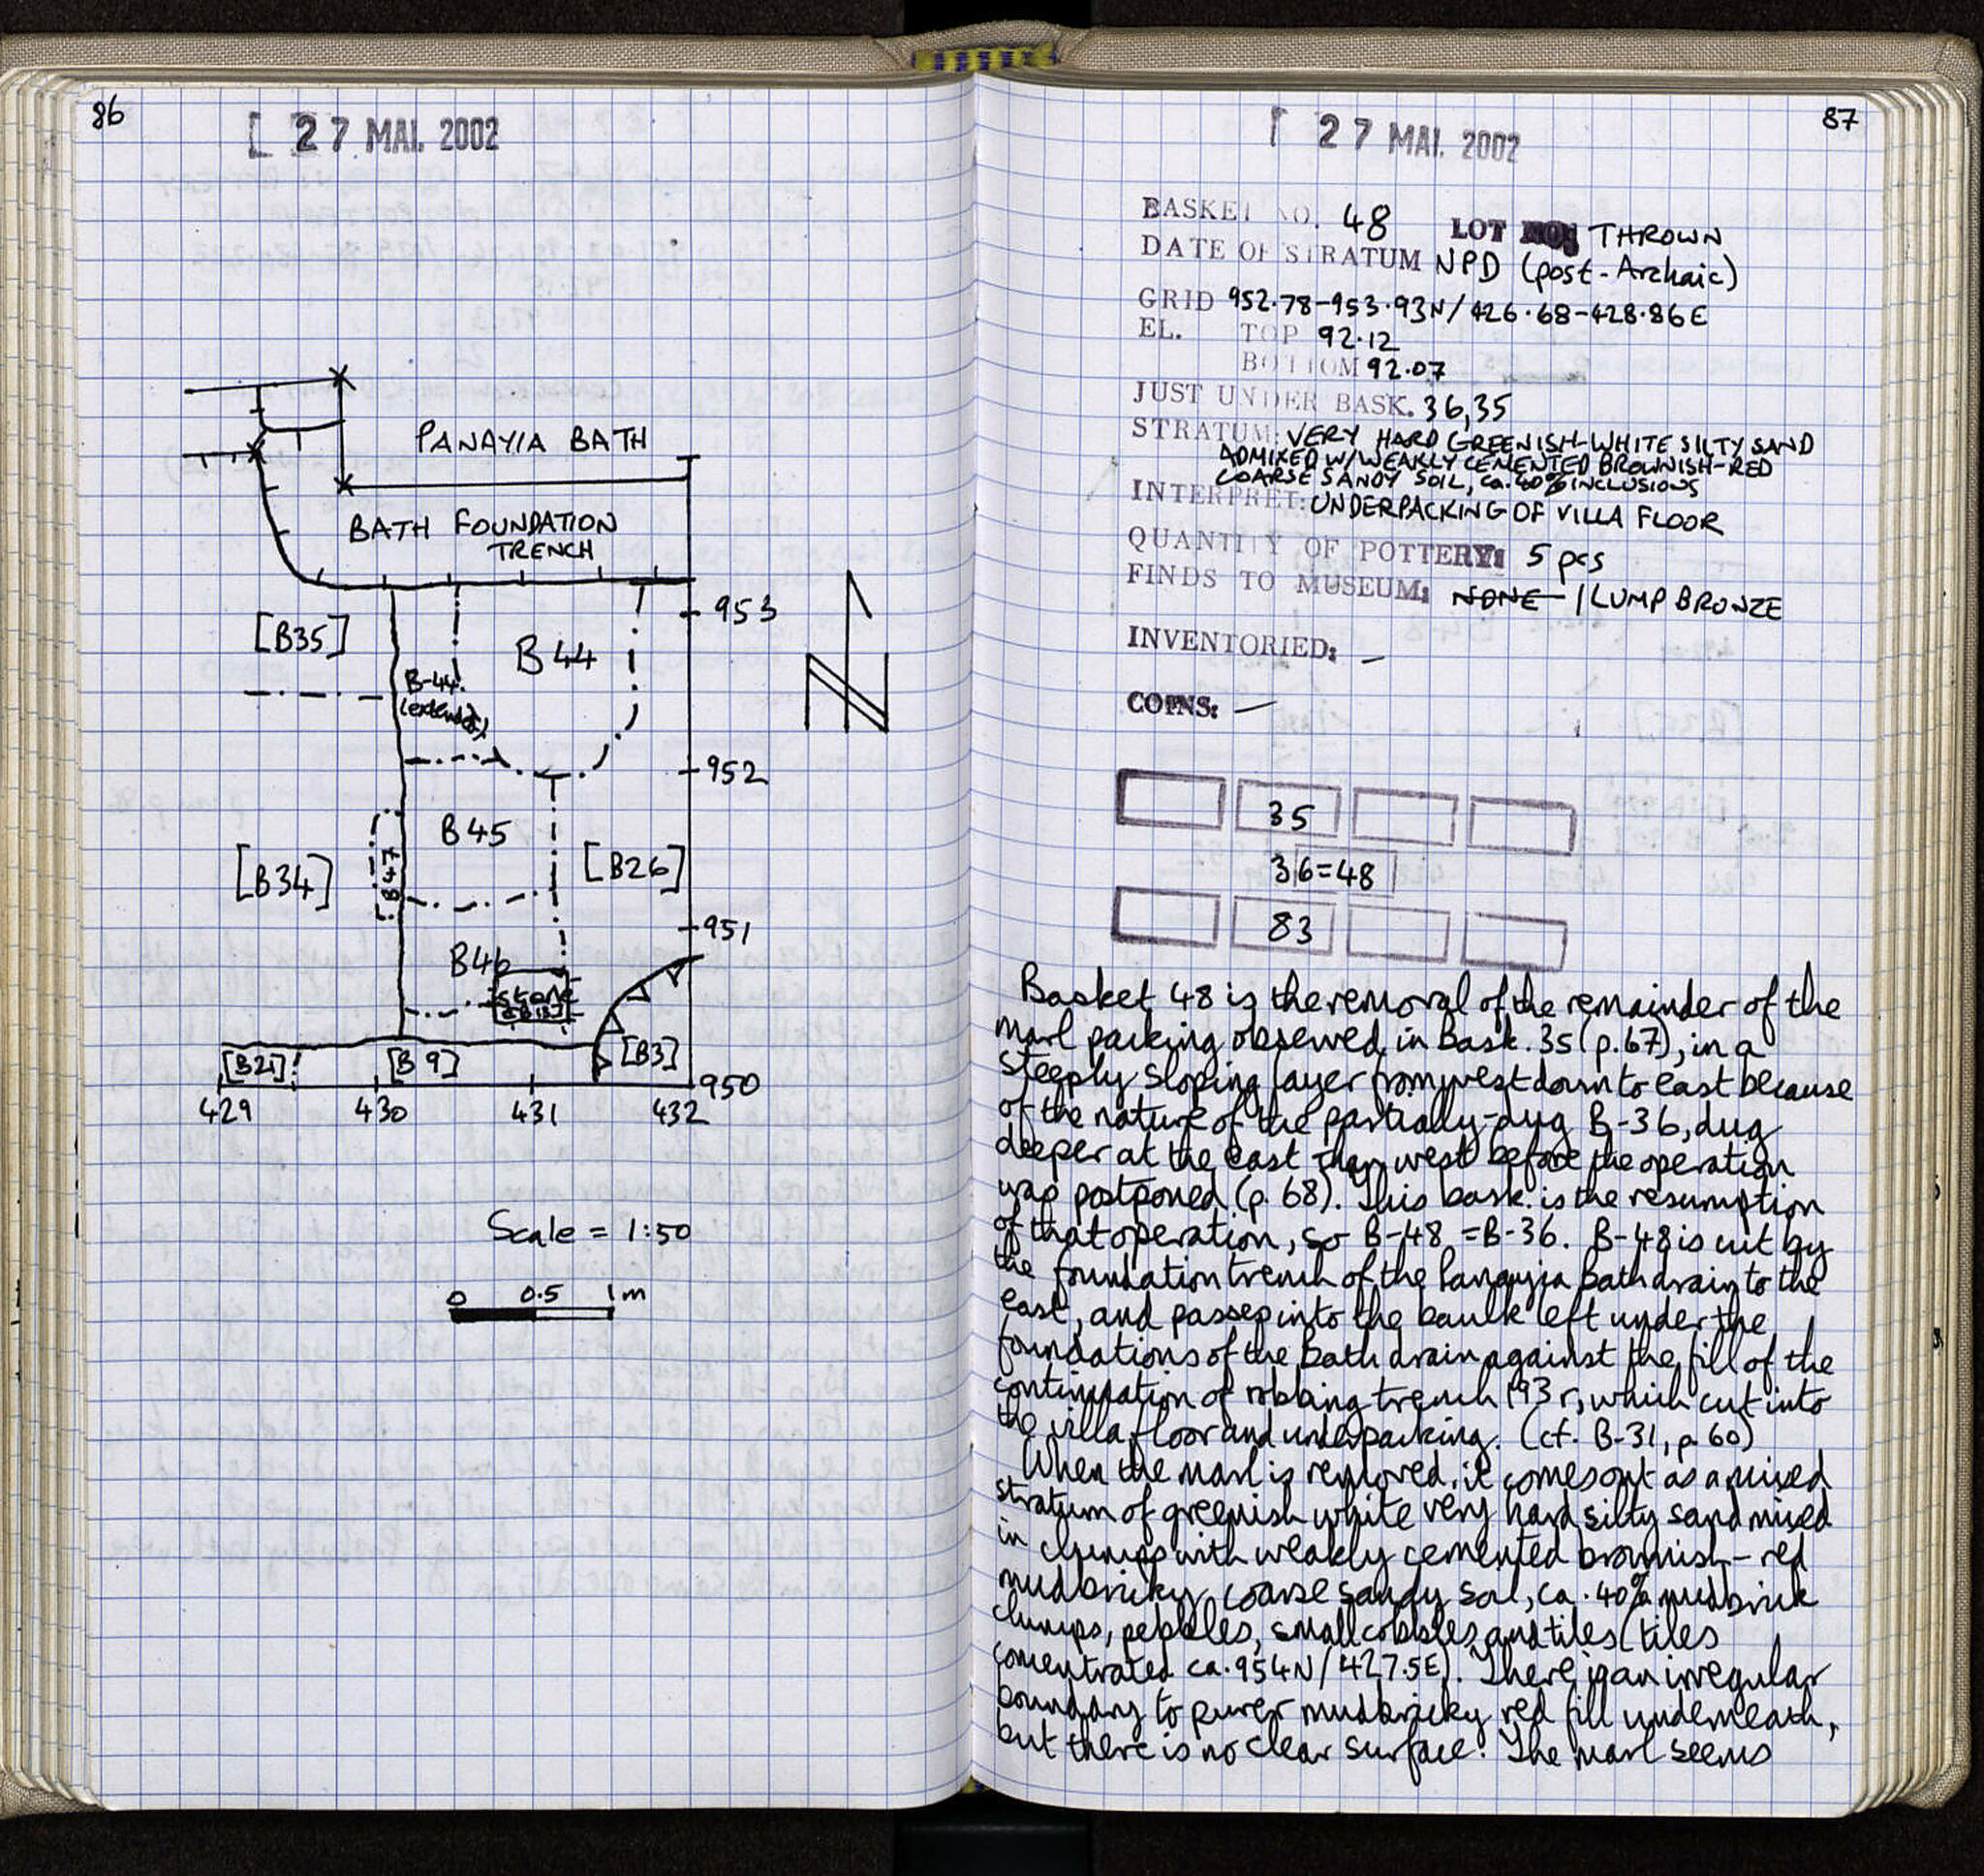 86
27 MAI. 2002
PANAYIA BATH
BATH FOUNDATION
TRENCH
953
[B35]
B44
B-44
(extended)
952
B45
[B34]
B47
[B26]
951
B46
stone
[B21]
[B9]
[B3]
950
429 430 431 432
N
Scale = 1:50
0 0.5 1m
87
27 MAI. 2002
BASKET NO. 48 LOT NO. THROWN
DATE OF STRATUM NPD (post-Archaic)
GRID 952.78-953.93N/426.68-428.86E
EL. TOP 92.12
BOTTOM 92.07
JUST UNDER BASK. 36,35
STRATUM: VERY HARD GREENISH-WHITE SILTY SAND
ADMIXED W/WEAKLY CEMENTED BROWNISH-RED
COARSE SANDY SOIL, ca. 40% INCLUSIONS
INTERPRET: UNDERPACKING OF VILLA FLOOR
QUANTITY OF POTTERY: 5 pcs
FINDS TO MUSEUM: NONE 1 LUMP BRONZE
INVENTORIED: –
COINS: –
35
36=48
83
Basket 48 is the removal of the remainder of the
marl packing observed in Bask. 35 (p.67), in a
steeply sloping layer from west down to east because
of the nature of the partially-dug B-36, dug
deeper at the east than west before the operation
was postponed (p. 68). This bask. is the resumption
of that operation, so B-48 = B-36. B-48 is cut by
the foundation trench of the Panayia Bath drain to the
east, and passes into the baulk left under the
foundations of the bath drain against the fill of the
continuation of robbing trench 193r, which cut into
the villa floor and underpacking. (cf. B-31, p. 60)
When the marl is removed, it comes out as a mixed
stratum of greenish white very hard silty sand mixed
in clumps with weakly cemented brownish-red
mudbricky coarse sandy soil, ca. 40% mudbrick
clumps, pebbles, small cobbles and tiles (tiles
concentrated ca. 954N/427.5E). There is an irregular
boundary to purer mudbricky red fill underneath,
but there is no clear surface. The marl seems